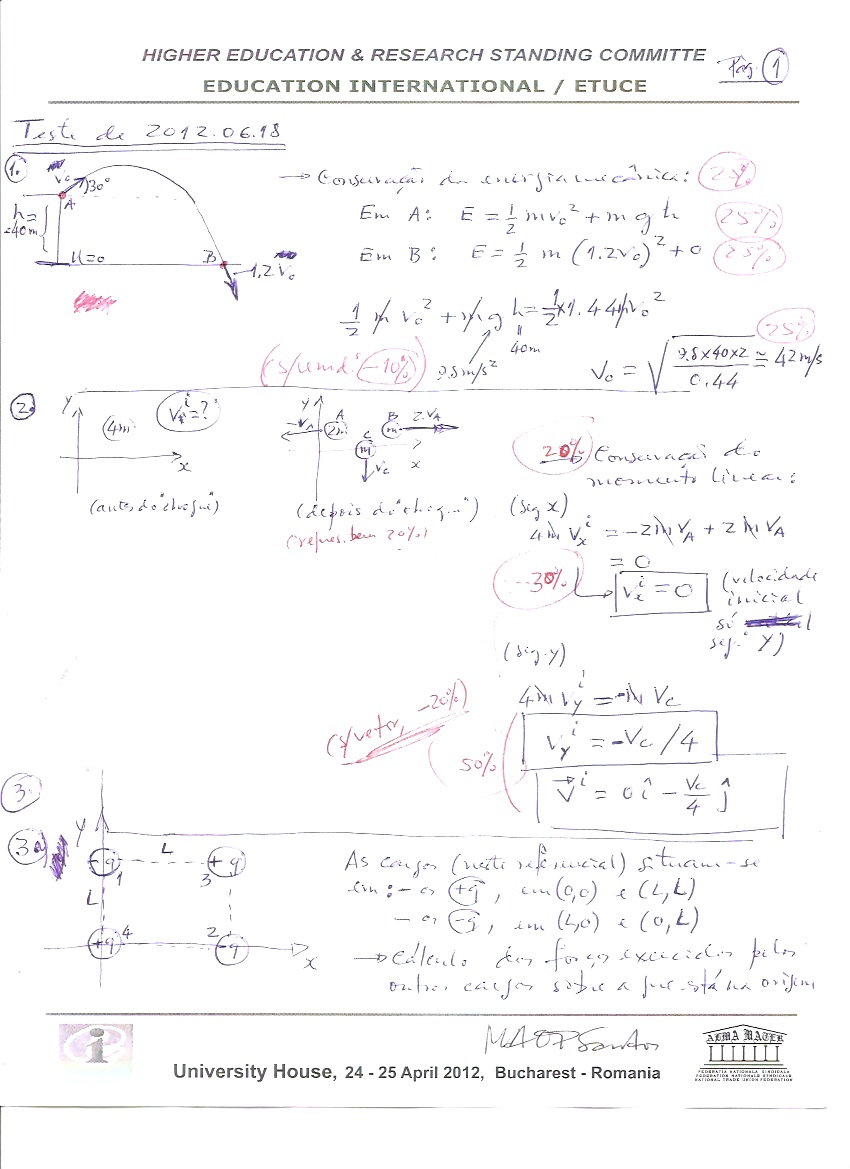 HIGHER EDUCATION & RESEARCH STANDING COMMITTE
EDUCATION INTERNATIONAL / ETUCE
Pág. 1
Teste de 2012.06.18
1.
V₀
30°
A
h=
=40m
U=0
B
1.2 V₀
→ Conservação da energia mecânica: 25%
Em A: E = ½ m v₀² + m g h 25%
Em B: E = ½ m (1.2v₀)² + 0 25%
½ m v₀² + m g h = ½ × 1.44 m v₀²
40m
9.8 m/s²
(s/unid. -10%)
25%
V₀ = √(9.8×40×2 / 0.44) ≃ 42 m/s
2.
Y
4m
x
(antes do "choque")
Y
-V_A
A
2m
B
m
2.V_A
C
m
V_C
x
(depois do "choque")
(repres. bem 20%)
20% Conservação do
momento linear:
(seg x)
4m V_xⁱ = -2m V_A + 2m V_A
= 0
30%
V_xⁱ = 0
(velocidade
inicial
só
seg. Y)
(seg. y)
4m V_yⁱ = -m V_C
(s/vetor, -20%)
50%
V_yⁱ = -V_C / 4
V⃗ⁱ = 0 î - V_C/4 ĵ
3.
3a)
Y
-q
1
L
+q
3
L
+q
4
2
-q
x
As cargas (neste referencial) situam-se
em: - as +q, em (0,0) e (L,L)
- as -q, em (L,0) e (0,L)
→ Cálculo das forças exercidas pelas
outras cargas sobre a que está na origem
i
MAOPSantos
ALMA MATER
FEDERATIA NATIONALA SINDICALA
FEDERATION NATIONALE SYNDICALE
NATIONAL TRADE UNION FEDERATION
University House, 24 - 25 April 2012, Bucharest - Romania